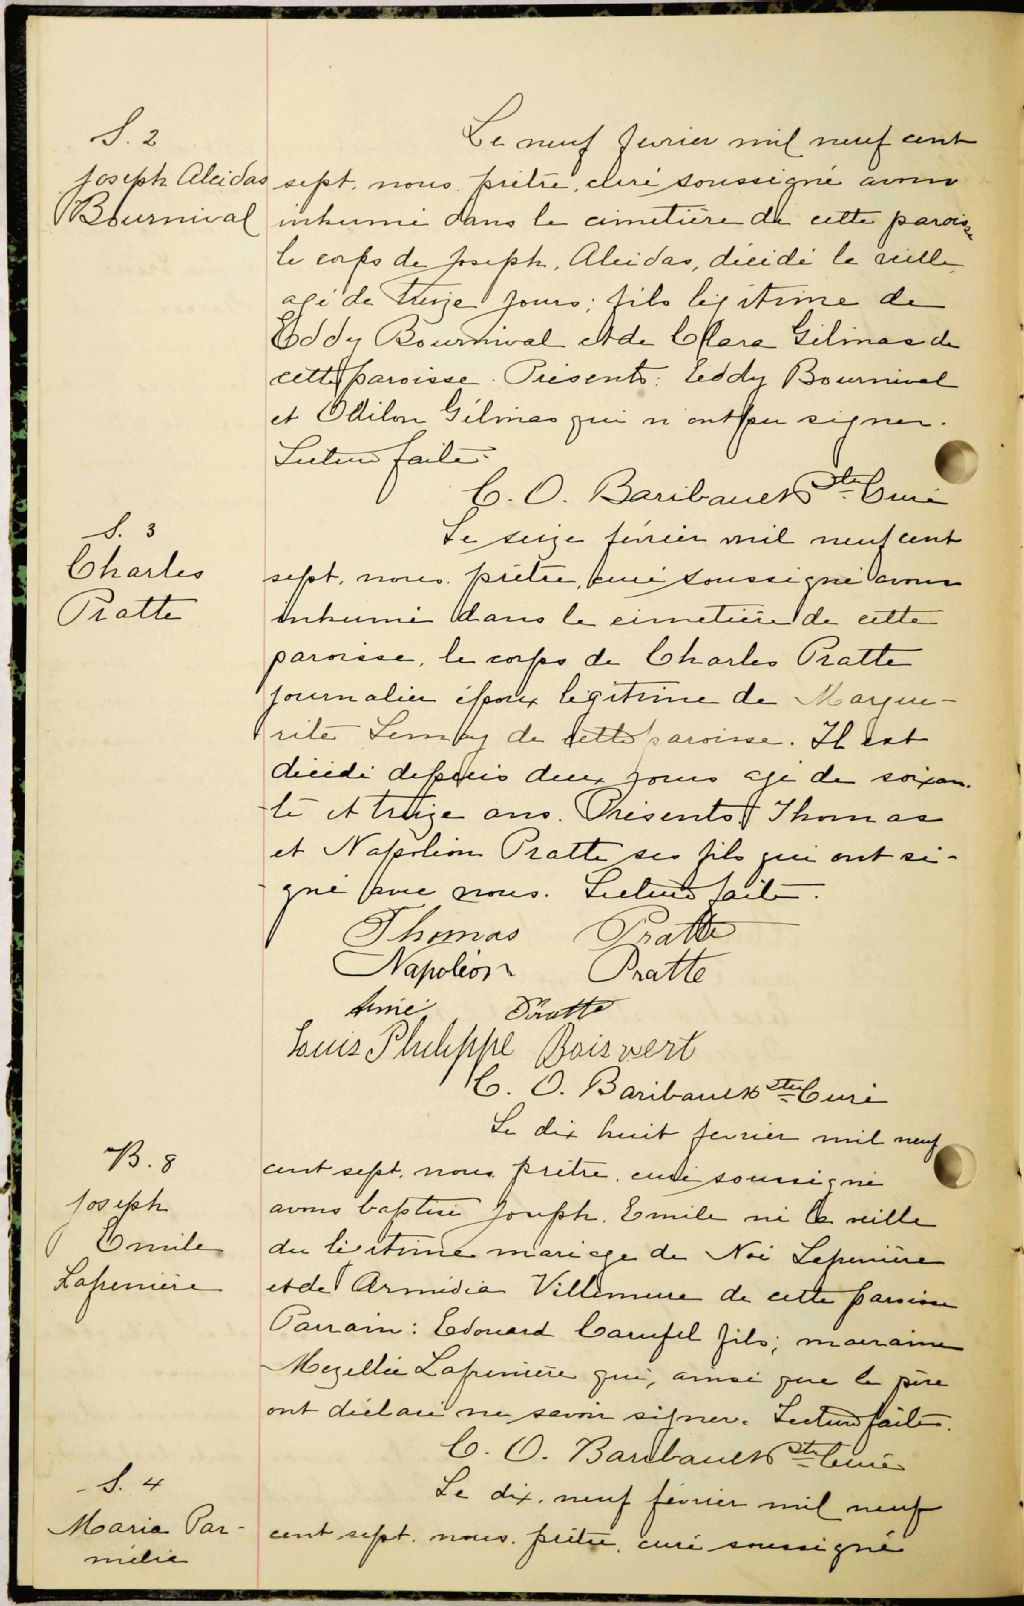 S. 2
Joseph Alcidas
Bournival
Le neuf fevrier mil neuf cent
sept, nous prêtre, curé soussigné avons
inhumé dans le cimetière de cette paroisse
le corps de Joseph, Alcidas, décédé la veille
agé de treize jours; fils légitime de
Eddy Bournival et de Clara Gélinas de
cette paroisse. Présents: Eddy Bournival
et Odilon Gélinas qui n'ont pu signer.
Lecture faite.
C. O. Baribault Ptre Curé
S. 3
Charles
Pratte
Le seize février mil neuf cent
sept, nous prêtre, curé soussigné avons
inhumé dans le cimetière de cette
paroisse, le corps de Charles Pratte
journalier époux legitime de Margue-
rite Lemay de cette paroisse. Il est
décédé depuis deux jours agé de soixan-
te et treize ans. Présents: Thomas
et Napoléon Pratte ses fils qui ont si-
gné avec nous. Lecture faite.
Thomas Pratte
Napoléon Pratte
Aimé Pratte
Louis Philippe Boisvert
C. O. Baribault Ptre Curé
B. 8
Joseph
Emile
Lafrenière
Le dix huit fevrier mil neuf
cent sept, nous prêtre, curé soussigné
avons baptisé Joseph, Emile né la veille
du légitime mariage de Noé Lafrenière
et de Armédia Villemure de cette paroisse
Parrain: Edouard Carufel fils; marraine
Lafrenière qui, ainsi que le père
ont déclaré ne savoir signer. Lecture faite.
C. O. Baribault Ptre Curé
S. 4
Maria Par-
mélie
Le dix, neuf février mil neuf
cent sept, nous, prêtre, curé soussigné